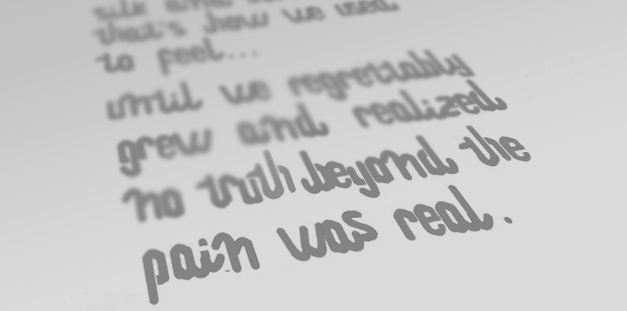 silk and
that's how we used
to feel...
until we regrettably
grew and realized
no truth beyond the
pain was real.